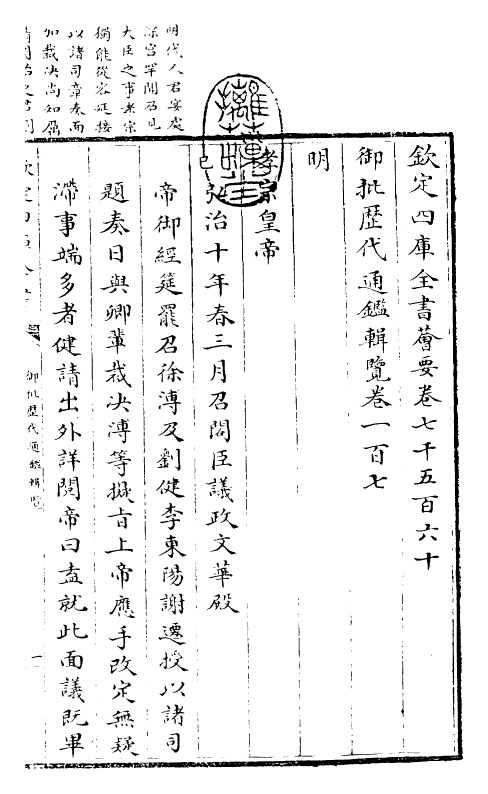 欽定四庫全書薈要卷七千五百六十
御批歷代通鑑輯覽卷一百七
明
孝宗皇帝
弘治十年春三月召閣臣議政文華殿
帝御經筵罷召徐溥及劉健李東陽謝遷授以諸司
題奏曰與卿輩裁決溥等擬旨上帝應手改定無疑
滯事端多者健請出外詳閱帝曰盍就此面議既畢
明代人君安處
深宮罕聞召見
大臣之事孝宗
獨能從容延接
以諸司章奏面
加裁決尚知厲
御批歷代通鑑輯覽
一